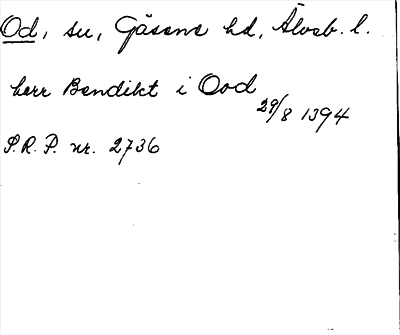 Od, sn, Gäsene hd, Älvsb. l.
herr Bendikt i Ood
29/8 1394
S.R.P. nr. 2736